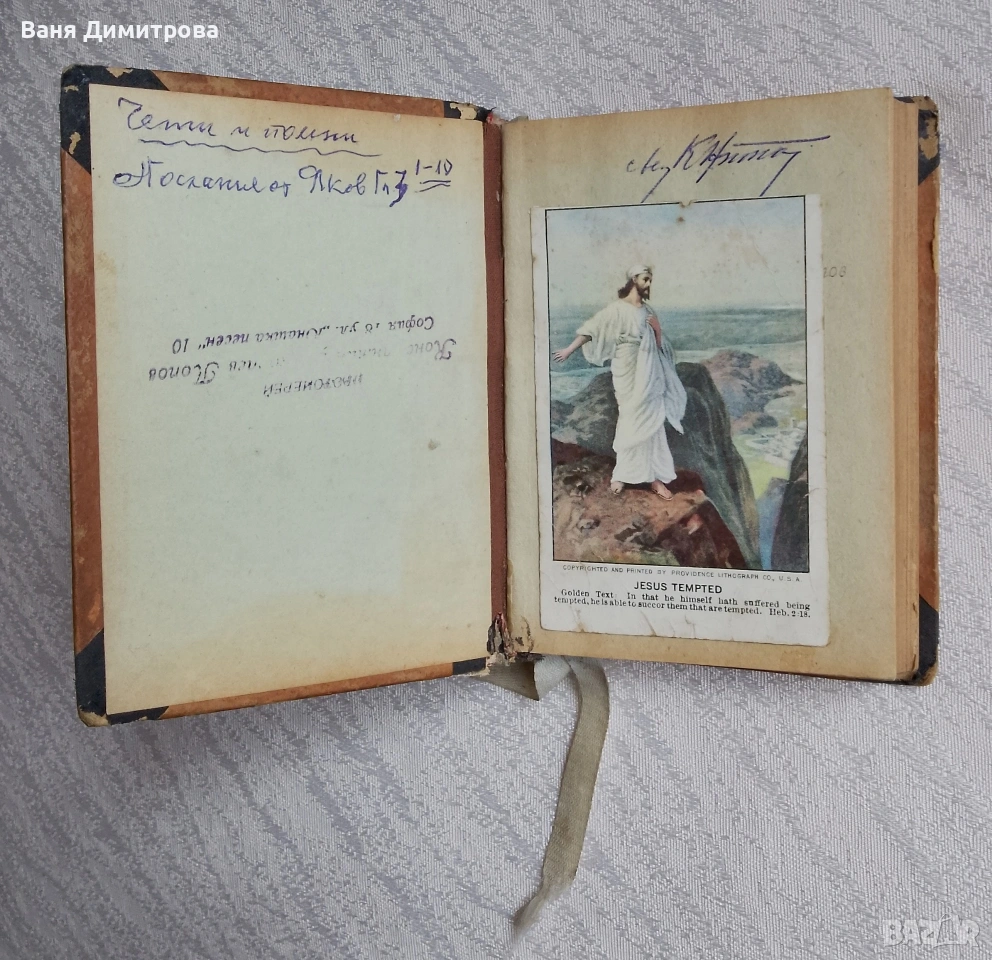 Ваня Димитрова
Чети и помни
Послания от Яков Гл 3 1-10
ИНЖЕНЕРЕЙ
Попов
София 18 ул. „Юнашка песен" 10
свещ
COPYRIGHTED AND PRINTED BY PROVIDENCE LITHOGRAPH CO., U.S.A.
JESUS TEMPTED
Golden Text. In that he himself hath suffered being
tempted, he is able to succor them that are tempted. Heb. 2:18.
BAZAR